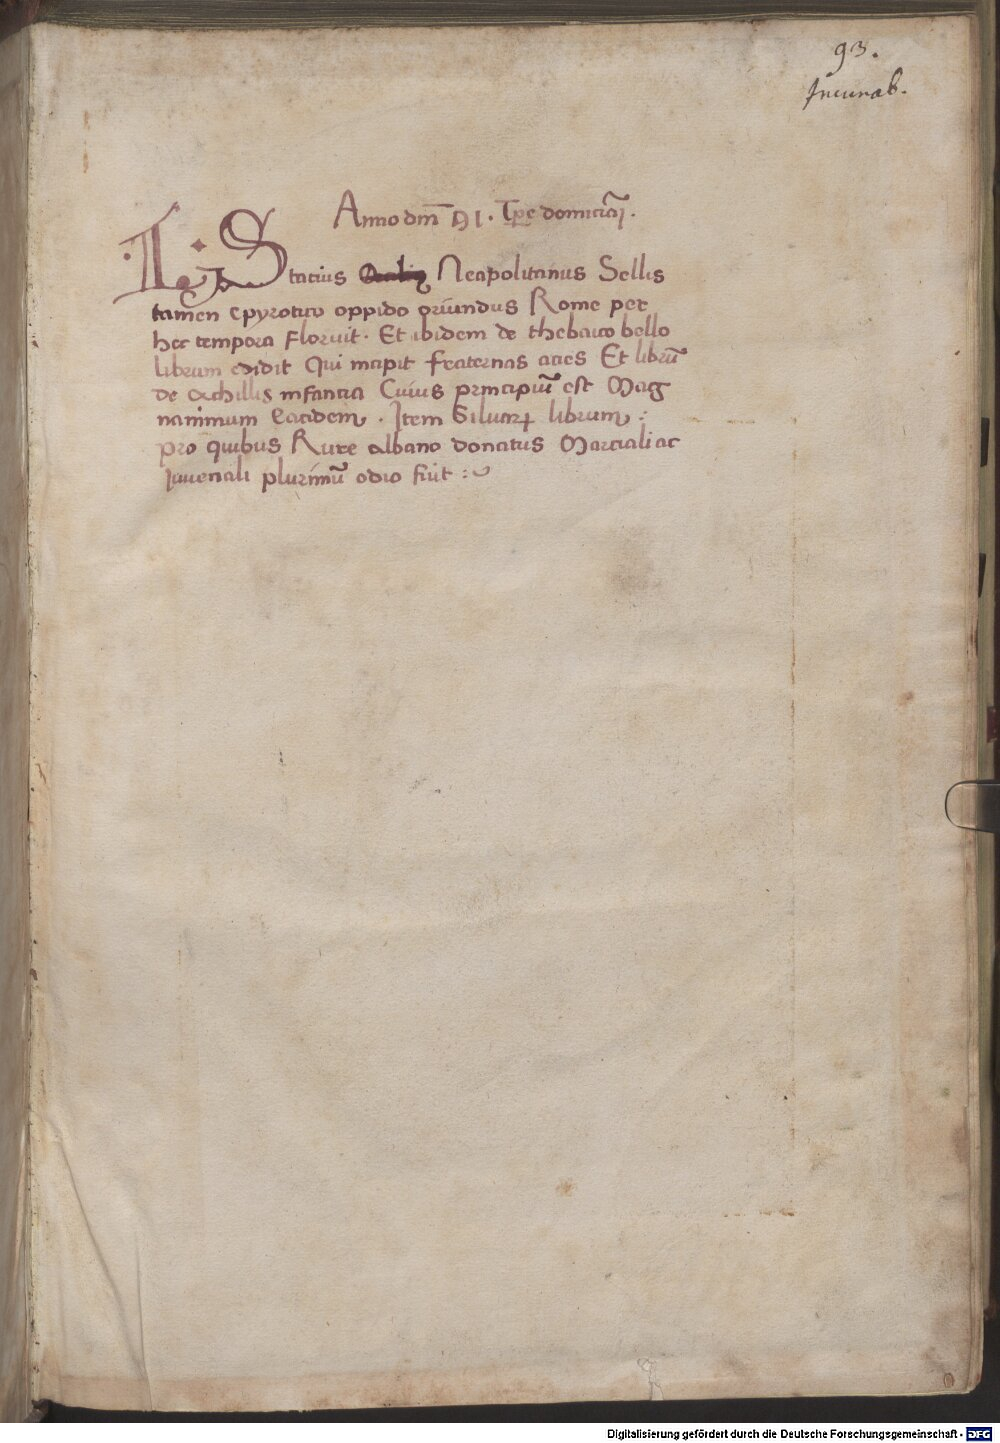 93.
Incunab.
Anno dm̄ 91. Tꝑe domiciāi.
.P. Statius Neapolitanus Sellis
tamen epyrotico oppido oriundus Rome per
hec tempora floruit. Et ibidem de thebaico bello
librum edidit Qui incipit fraternas acies Et librū
de Achillis infantia Cuius principiū est Mag
nanimum Eacidem. Item Siluaꝝ librum :
pro quibus Rure albano donatus Martiali ac
Iuuenali plurimū odio fuit :
Digitalisierung gefördert durch die Deutsche Forschungsgemeinschaft - DFG